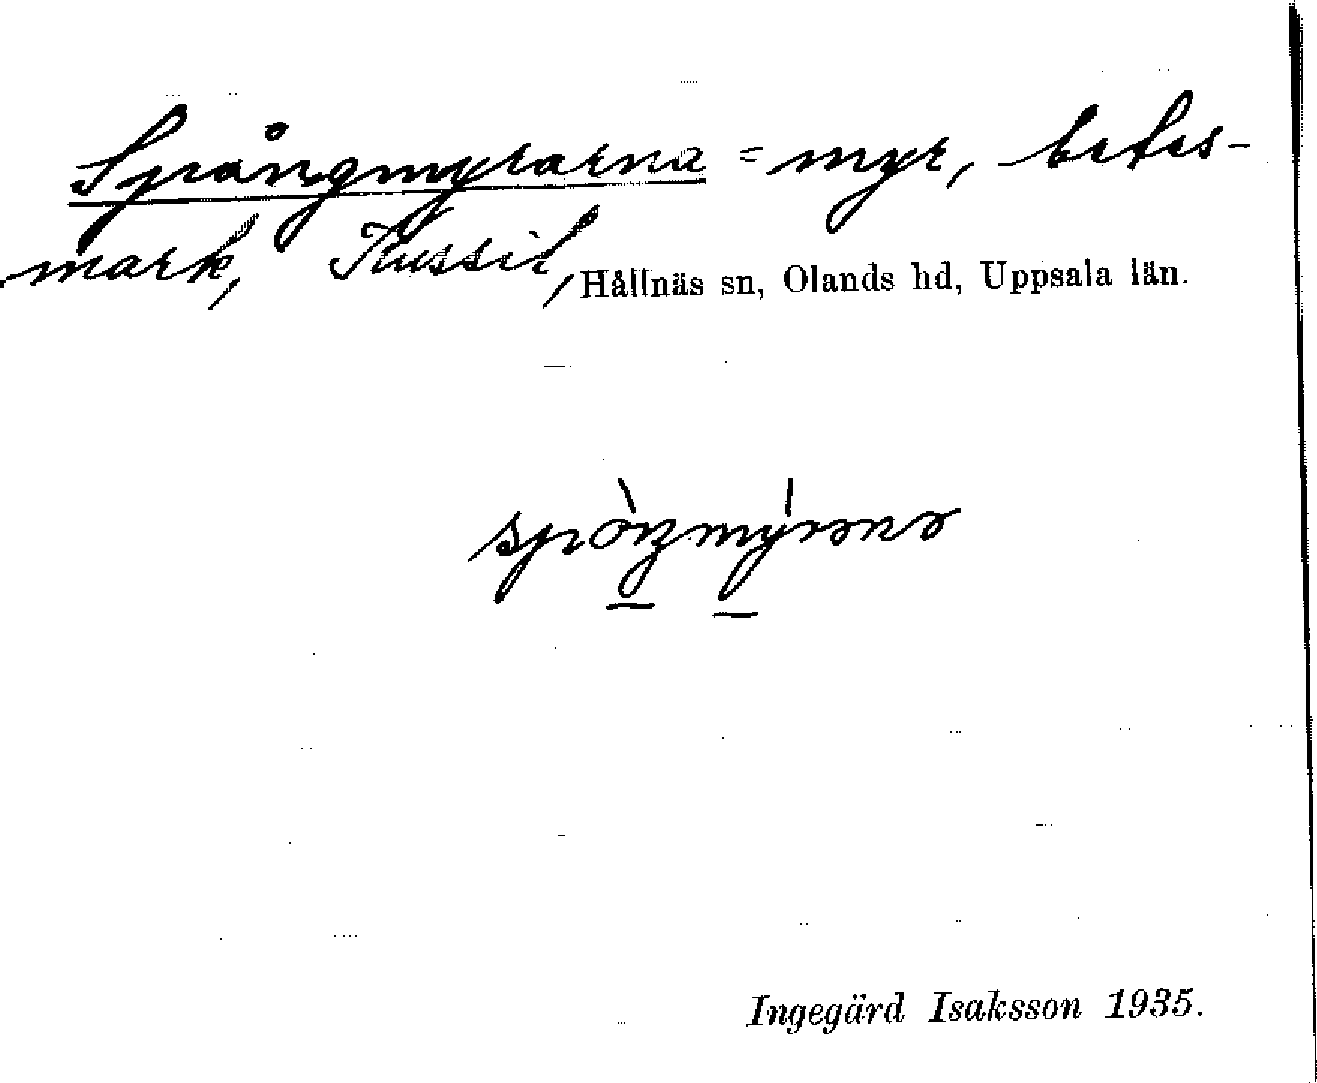 Spångmyrarna = myr, betes-
mark, Kussil, Hållnäs sn, Olands hd, Uppsala län.
Ingegärd Isaksson 1935.